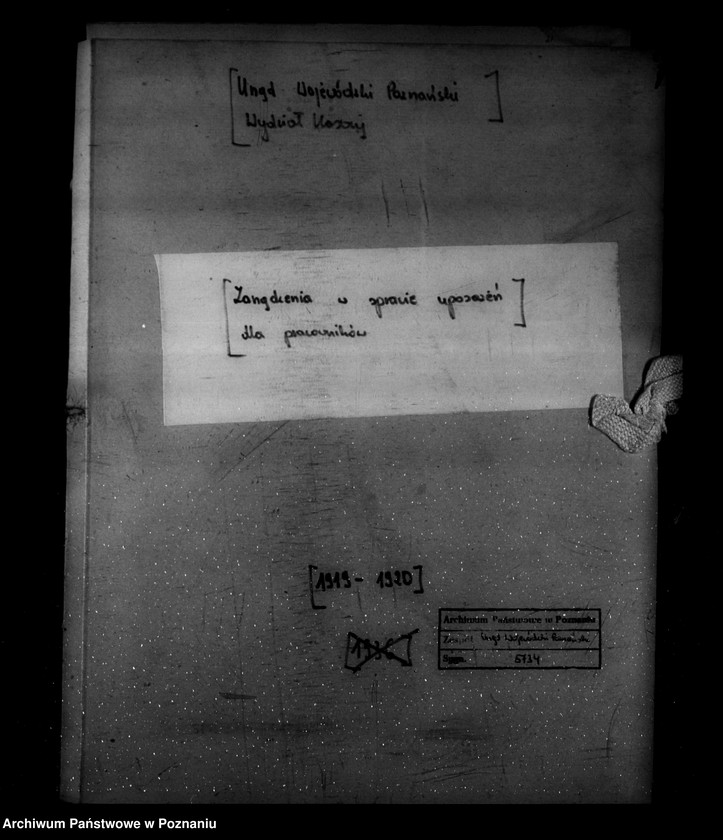 [Urząd Wojewódzki Poznański]
Wydział
[Zarządzenia w sprawie uposażeń]
dla pracowników
[1919 - 1920]
Archiwum Państwowe w Poznaniu
Zespół Urząd Wojewódzki Poznański
Sygn. 5734
Archiwum Państwowe w Poznaniu